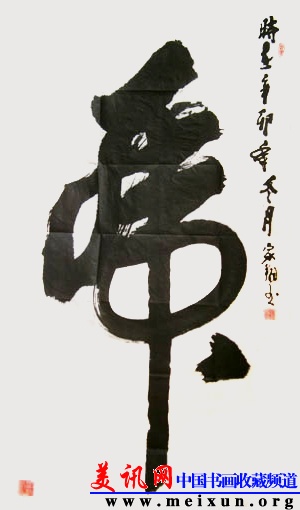 虎
時在辛卯年冬月
美讯网 中国书画收藏频道
www.meixun.org